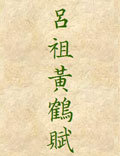 呂祖黃鶴賦